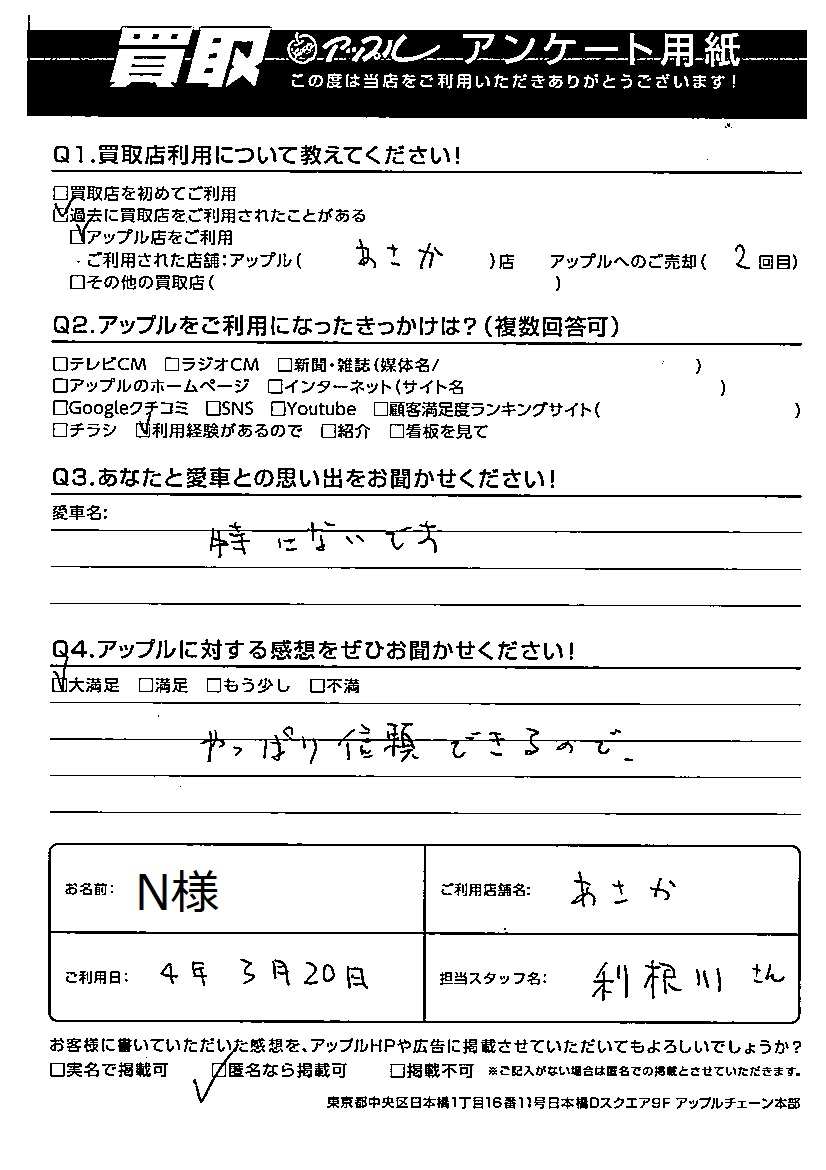 買取 アップル アンケート用紙
この度は当店をご利用いただきありがとうございます!
Q1.買取店利用について教えてください!
□買取店を初めてご利用
☑過去に買取店をご利用されたことがある
☑アップル店をご利用
・ご利用された店舗:アップル( あさか )店 アップルへのご売却( 2 回目)
□その他の買取店( )
Q2.アップルをご利用になったきっかけは?(複数回答可)
□テレビCM □ラジオCM □新聞・雑誌(媒体名/ )
□アップルのホームページ □インターネット(サイト名 )
□Googleクチコミ □SNS □Youtube □顧客満足度ランキングサイト( )
□チラシ ☑利用経験があるので □紹介 □看板を見て
Q3.あなたと愛車との思い出をお聞かせください!
愛車名:
特にないです
Q4.アップルに対する感想をぜひお聞かせください!
☑大満足 □満足 □もう少し □不満
やっぱり信頼できるので。
お名前: N様 ご利用店舗名: あさか
ご利用日: 4年 3月20日 担当スタッフ名: 利根川 さん
お客様に書いていただいた感想を、アップルHPや広告に掲載させていただいてもよろしいでしょうか?
□実名で掲載可 ☑匿名なら掲載可 □掲載不可 ※ご記入がない場合は匿名での掲載とさせていただきます。
東京都中央区日本橋1丁目16番11号日本橋Dスクエア9F アップルチェーン本部